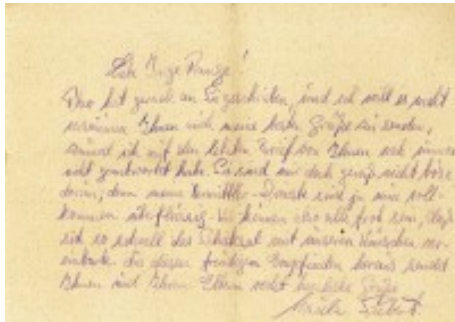 Liebe Inge Runge!
Theo hat gerade an Sie geschrieben, und ich will es nicht
versäumen Ihnen auch meine besten Grüße zu senden,
zumal ich auf den letzten Brief von Ihnen noch immer
nicht geantwortet habe. Sie sind mir doch gewiß nicht böse
darum; denn meine Vermittler-Dienste sind ja nun voll-
kommen überflüssig. Wir können also alle froh sein, daß
sich so schnell das Schicksal mit unseren Wünschen ver-
einbarte. Aus diesem freudigen Empfinden heraus sendet
Ihnen und Ihren Eltern recht herzliche Grüße